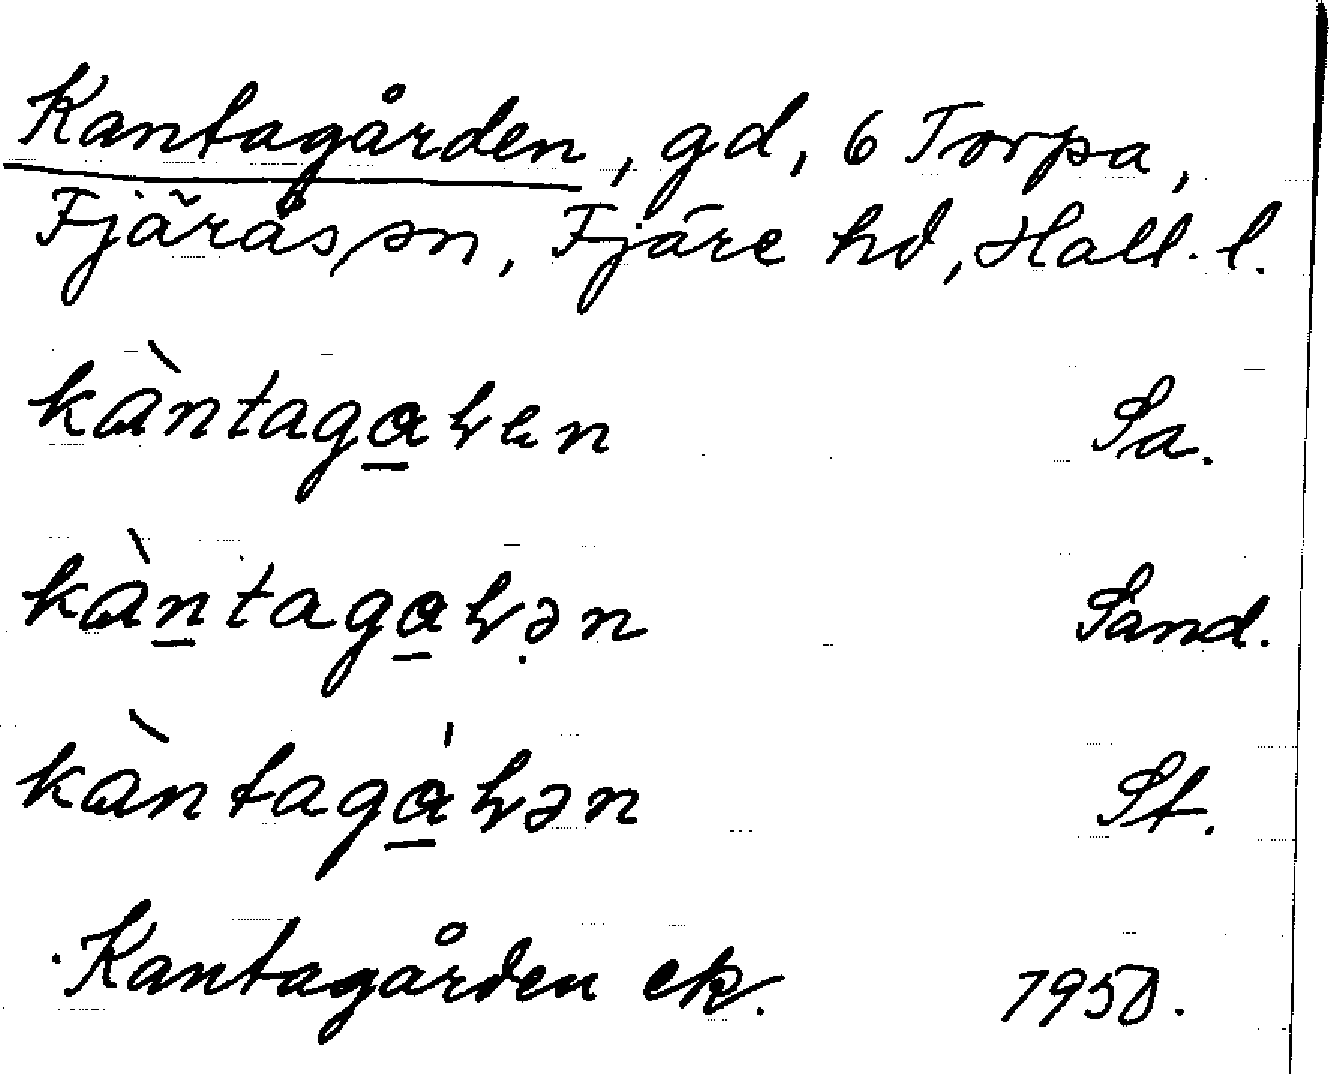 Kantagården, gd, 6 Torpa,
Fjärås sn, Fjäre hd, Hall. l.
kàntaga̲ꝛen Sa.
kàn̲taga̲ꝛə̣n Sand.
kàntagá̲ꝛən St.
Kantagården ek. 1950.